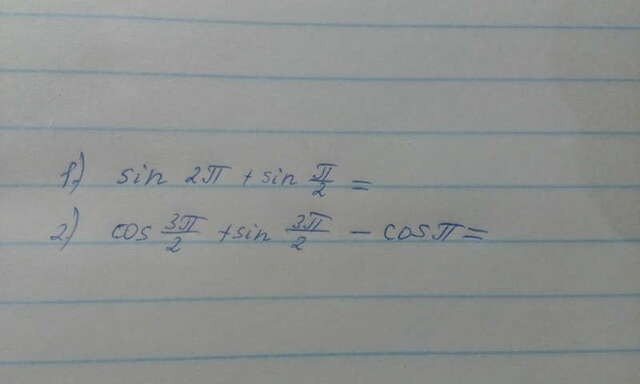 1) sin 2π + sin π/2 =
2) cos 3π/2 + sin 3π/2 - cos π =